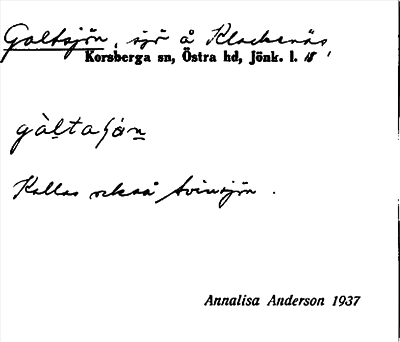 Galtsjön, sjö å Klackenäs,
Korsberga sn, Östra hd, Jönk. l.
gàltasjön
Kallas också Svinsjön.
Annalisa Anderson 1937